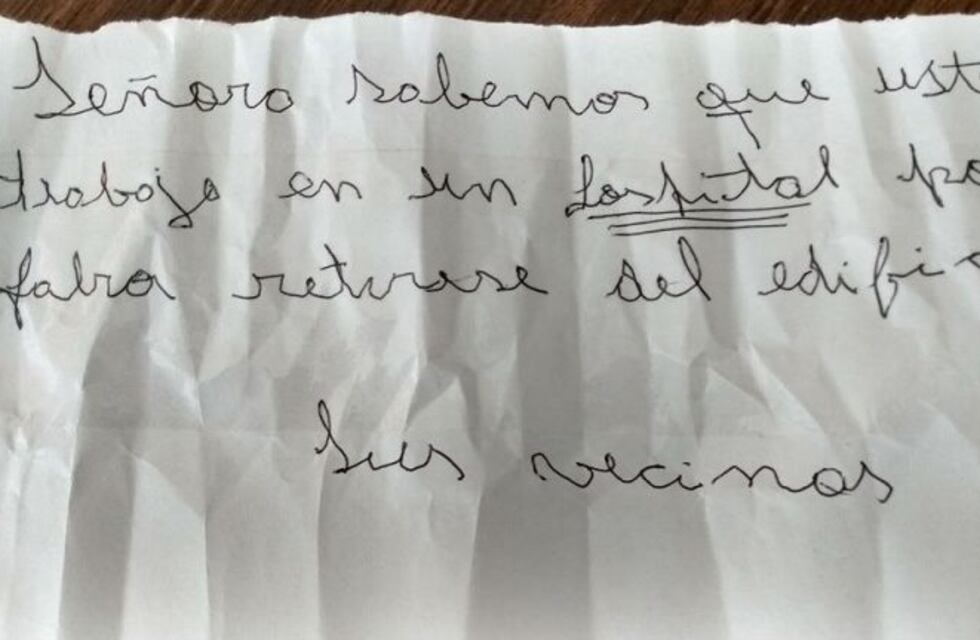 Señora sabemos que ust
trabaja en un hospital po
fabra retirase del edifi
Sus vecinos